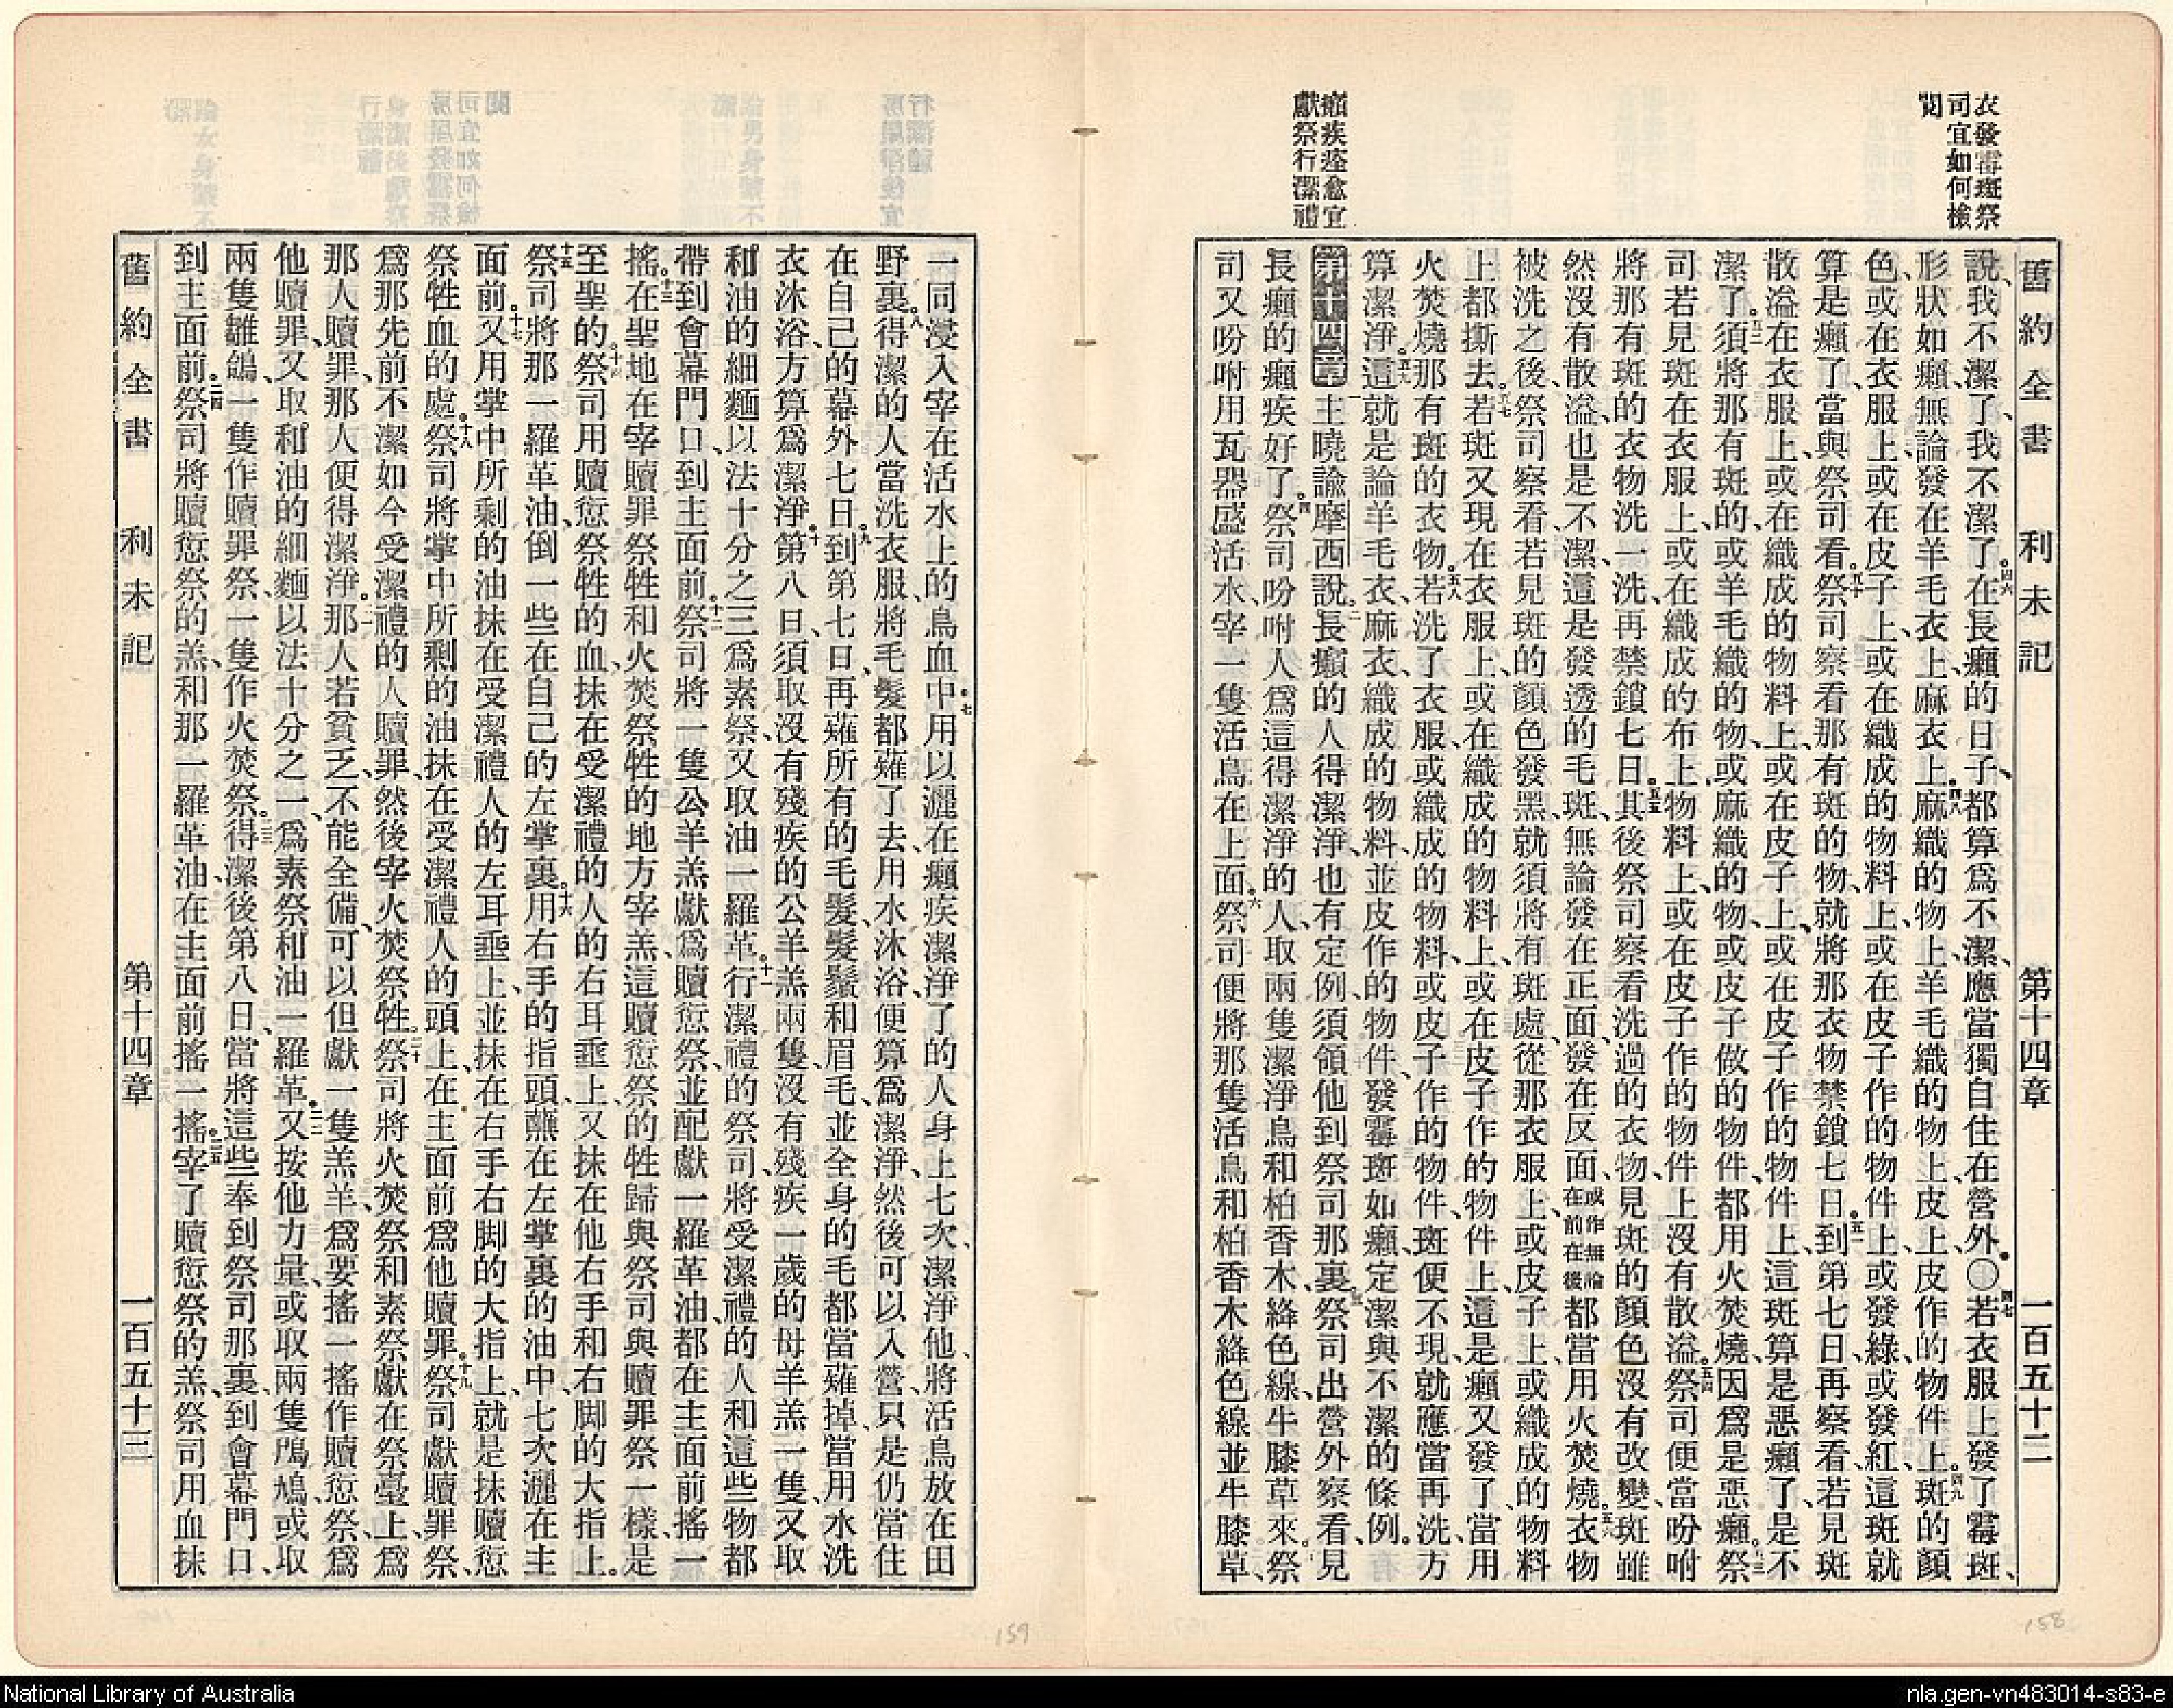 衣發霉斑祭
司宜如何檢
閱
癩疾痊愈宜
獻祭行潔禮
舊約全書 利未記 第十四章 一百五十二
說、我不潔了、我不潔了。四六在長癩的日子、都算爲不潔、應當獨自住在營外。〇四七若衣服上發了霉斑、
形狀如癩、無論發在羊毛衣上、麻衣上、四八麻織的物上、羊毛織的物上、皮上、皮作的物件上。四九斑的顏
色、或在衣服上、或在皮子上、或在織成的物料上、或在皮子作的物件上、或發綠、或發紅、這斑就
算是癩了、當與祭司看。五十祭司察看那有斑的物、就將那衣物禁鎖七日。五一到第七日、再察看、若見斑
散溢在衣服上、或在織成的物料上、或在皮子上、或在皮子作的物件上、這斑算是惡癩了、是不
潔了。五二須將那有斑的、或羊毛織的物、或麻織的物、或皮子做的物件、都用火焚燒、因爲是惡癩。五三祭
司若見斑在衣服上、或在織成的布上、物料上、或在皮子作的物件上、沒有散溢。五四祭司便當吩咐
將那有斑的衣物洗一洗、再禁鎖七日。五五其後祭司察看洗過的衣物、見斑的顏色沒有改變、斑雖
然沒有散溢、也是不潔、這是發透的毛斑、無論發在正面、發在反面、或作無論在前在後都當用火焚燒。五六衣物
被洗之後、祭司察看、若見斑的顏色發黑、就須將有斑處、從那衣服上、或皮子上、或織成的物料
上、都撕去。五七若斑又現在衣服上、或在織成的物料上、或在皮子作的物件上、這是癩又發了、當用
火焚燒那有斑的衣物。五八若洗了衣服、或織成的物料、或皮子作的物件、斑便不現、就應當再洗、方
算潔淨。五九這就是論羊毛衣、麻衣、織成的物料、並皮作的物件、發霉斑如癩、定潔與不潔的條例。
第十四章 一主曉諭摩西說、二長癩的人得潔淨、也有定例、須領他到祭司那裏。三祭司出營外察看、見
長癩的癩疾好了。四祭司吩咐人爲這得潔淨的人、取兩隻潔淨鳥、和柏香木、絳色線、牛膝草來。五祭
司又吩咐用瓦器盛活水、宰一隻活鳥在上面。六祭司便將那隻活鳥、和柏香木、絳色線、並牛膝草、
一同浸入宰在活水上的鳥血中。七用以灑在癩疾潔淨了的人身上七次、潔淨他、將活鳥放在田
野裏。八得潔的人當洗衣服、將毛髮都薙了去、用水沐浴、便算爲潔淨、然後可以入營、只是仍當住
在自己的幕外七日。九到第七日、再薙所有的毛髮、髮鬚和眉毛、並全身的毛都當薙掉、當用水洗
衣沐浴、方算爲潔淨。十第八日、須取沒有殘疾的公羊羔兩隻、沒有殘疾一歲的母羊羔一隻、又取
和油的細麵以法十分之三爲素祭、又取油一羅革。十一行潔禮的祭司、將受潔禮的人和這些物、都
帶到會幕門口、到主面前。十二祭司將一隻公羊羔獻爲贖愆祭、並配獻一羅革油、都在主面前搖一
搖。十三在聖地、在宰贖罪祭牲和火焚祭牲的地方宰羔、這贖愆祭的牲歸與祭司、與贖罪祭一樣、是
至聖的。十四祭司用贖愆祭牲的血、抹在受潔禮的人的右耳垂上、又抹在他右手和右脚的大指上。
十五祭司將那一羅革油、倒一些在自己的左掌裏。十六用右手的指頭蘸在左掌裏的油中、七次灑在主
面前。十七又用掌中所剩的油、抹在受潔禮人的左耳垂上、並抹在右手右脚的大指上、就是抹贖愆
祭牲血的處。十八祭司將掌中所剩的油、抹在受潔禮人的頭上、在主面前爲他贖罪。十九祭司獻贖罪祭、
爲那先前不潔如今受潔禮的人贖罪、然後宰火焚祭牲。二十祭司將火焚祭和素祭、獻在祭臺上、爲
那人贖罪、那人便得潔淨。二一那人若貧乏、不能全備、可以但獻一隻羔羊、爲要搖一搖作贖愆祭、爲
他贖罪、又取和油的細麵以法十分之一、爲素祭、和油一羅革。二二又按他力量、或取兩隻鳲鳩、或取
兩隻雛鴿、一隻作贖罪祭、一隻作火焚祭。二三得潔後第八日、當將這些奉到祭司那裏、到會幕門口、
到主面前。二四祭司將贖愆祭的羔、和那一羅革油、在主面前搖一搖。二五宰了贖愆祭的羔、祭司用血抹
舊約全書 利未記 第十四章 一百五十三
158
159
National Library of Australia
nla.gen-vn483014-s83-e